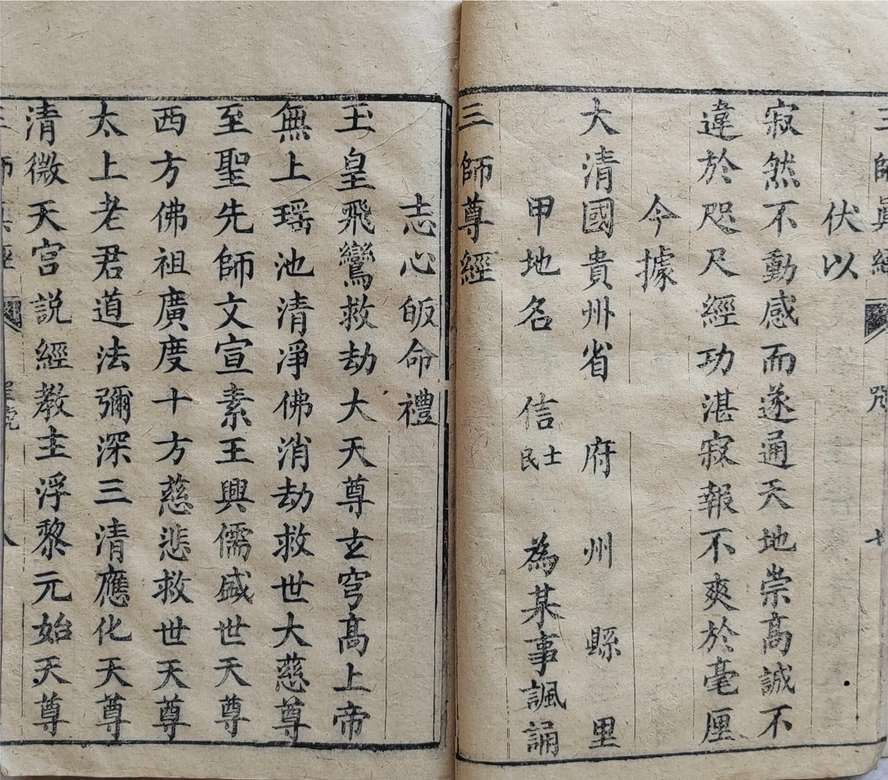 三師眞經
伏以
寂然不動感而遂通天地崇高誠不
違於咫尺經功湛寂報不爽於毫厘
今據
大清國貴州省 府 州 縣 里
甲地名 信士民 為某事諷誦
三師尊經
志心皈命禮
玉皇飛鸞救劫大天尊玄穹高上帝
無上瑶池清淨佛消劫救世大慈尊
至聖先師文宣素王興儒盛世天尊
西方佛祖廣度十方慈悲救世天尊
太上老君道法彌深三清應化天尊
清微天宫説經教主浮黎元始天尊
三師眞經 八